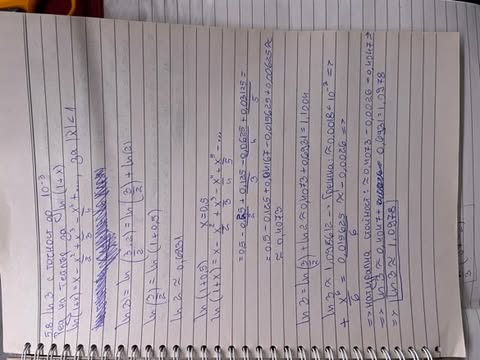 5.8. ln 3 с точност до 10⁻³
Ред на Тейлър за ln (1+x)
ln(1+x) = x - x²/2 + x³/3 - x⁴/4 + ..., за |x| < 1
ln 3 = ln (3/2 . 2) = ln (3/2) + ln(2)
ln (3/2) = ln (1+0,5)
ln 2 ≈ 0,6931
ln (1+0,5) x=0,5
ln (1+x) = x - x²/2 + x³/3 - x⁴/4 + x⁵/5 - ...
= 0,5 - 0,25/2 + 0,125/3 - 0,0625/4 + 0,03125/5 =
= 0,5 - 0,125 + 0,04167 - 0,015625 + 0,00625 ≈
≈ 0,4073
ln 3 = ln(3/2) + ln 2 ≈ 0,4073 + 0,6931 = 1,1004
ln 3 ≈ 1,098612 -> Грешка: ≈ 0,0018 > 10⁻³ =>
+ x⁶/6 = 0,015625/6 ≈ -0,0026 =>
=> натурална стойност: ≈ 0,4073 - 0,0026 = 0,4047 =
=> ln 3 ≈ 0,4047 + 0,6931 = 1,0978
=> ln 3 ≈ 1,0978